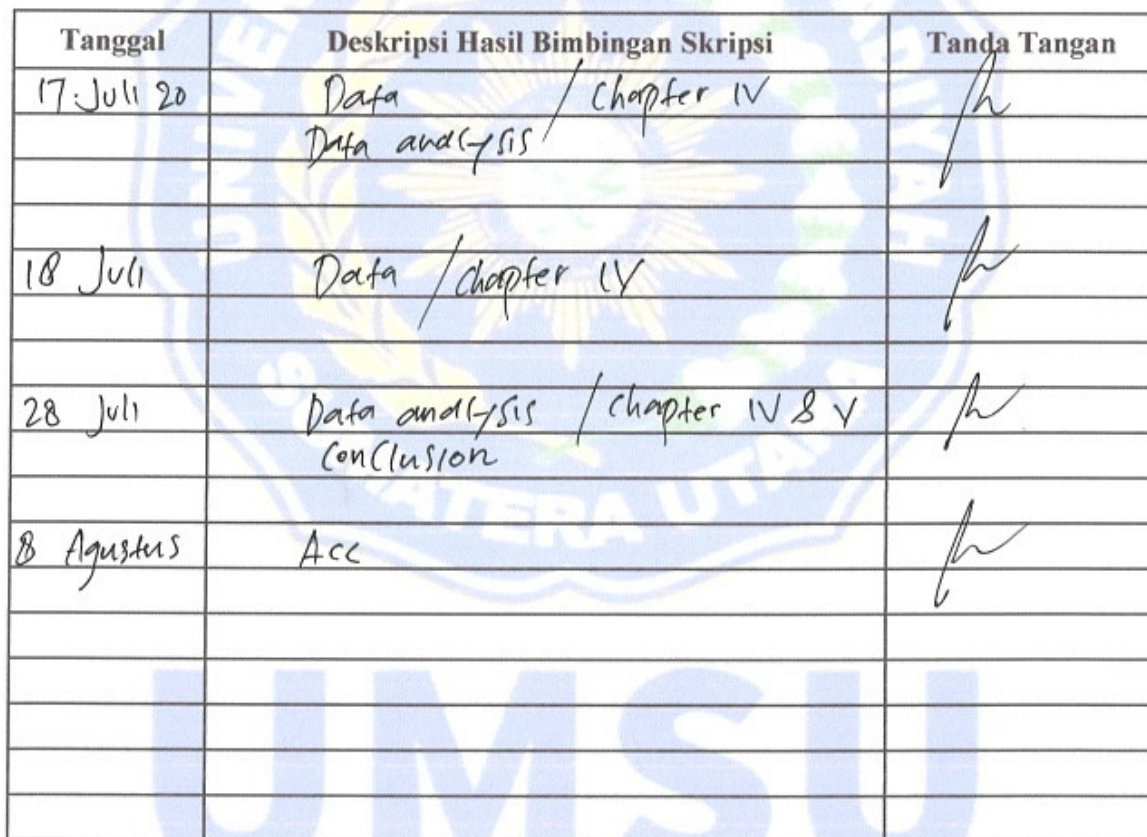 Tanggal Deskripsi Hasil Bimbingan Skripsi Tanda Tangan
17 Juli 20 Data / Chapter IV
Data analysis
18 Juli Data / Chapter IV
28 Juli Data analysis / Chapter IV & V
Conclusion
8 Agustus Acc
SUMATERA UTARA
UMSU